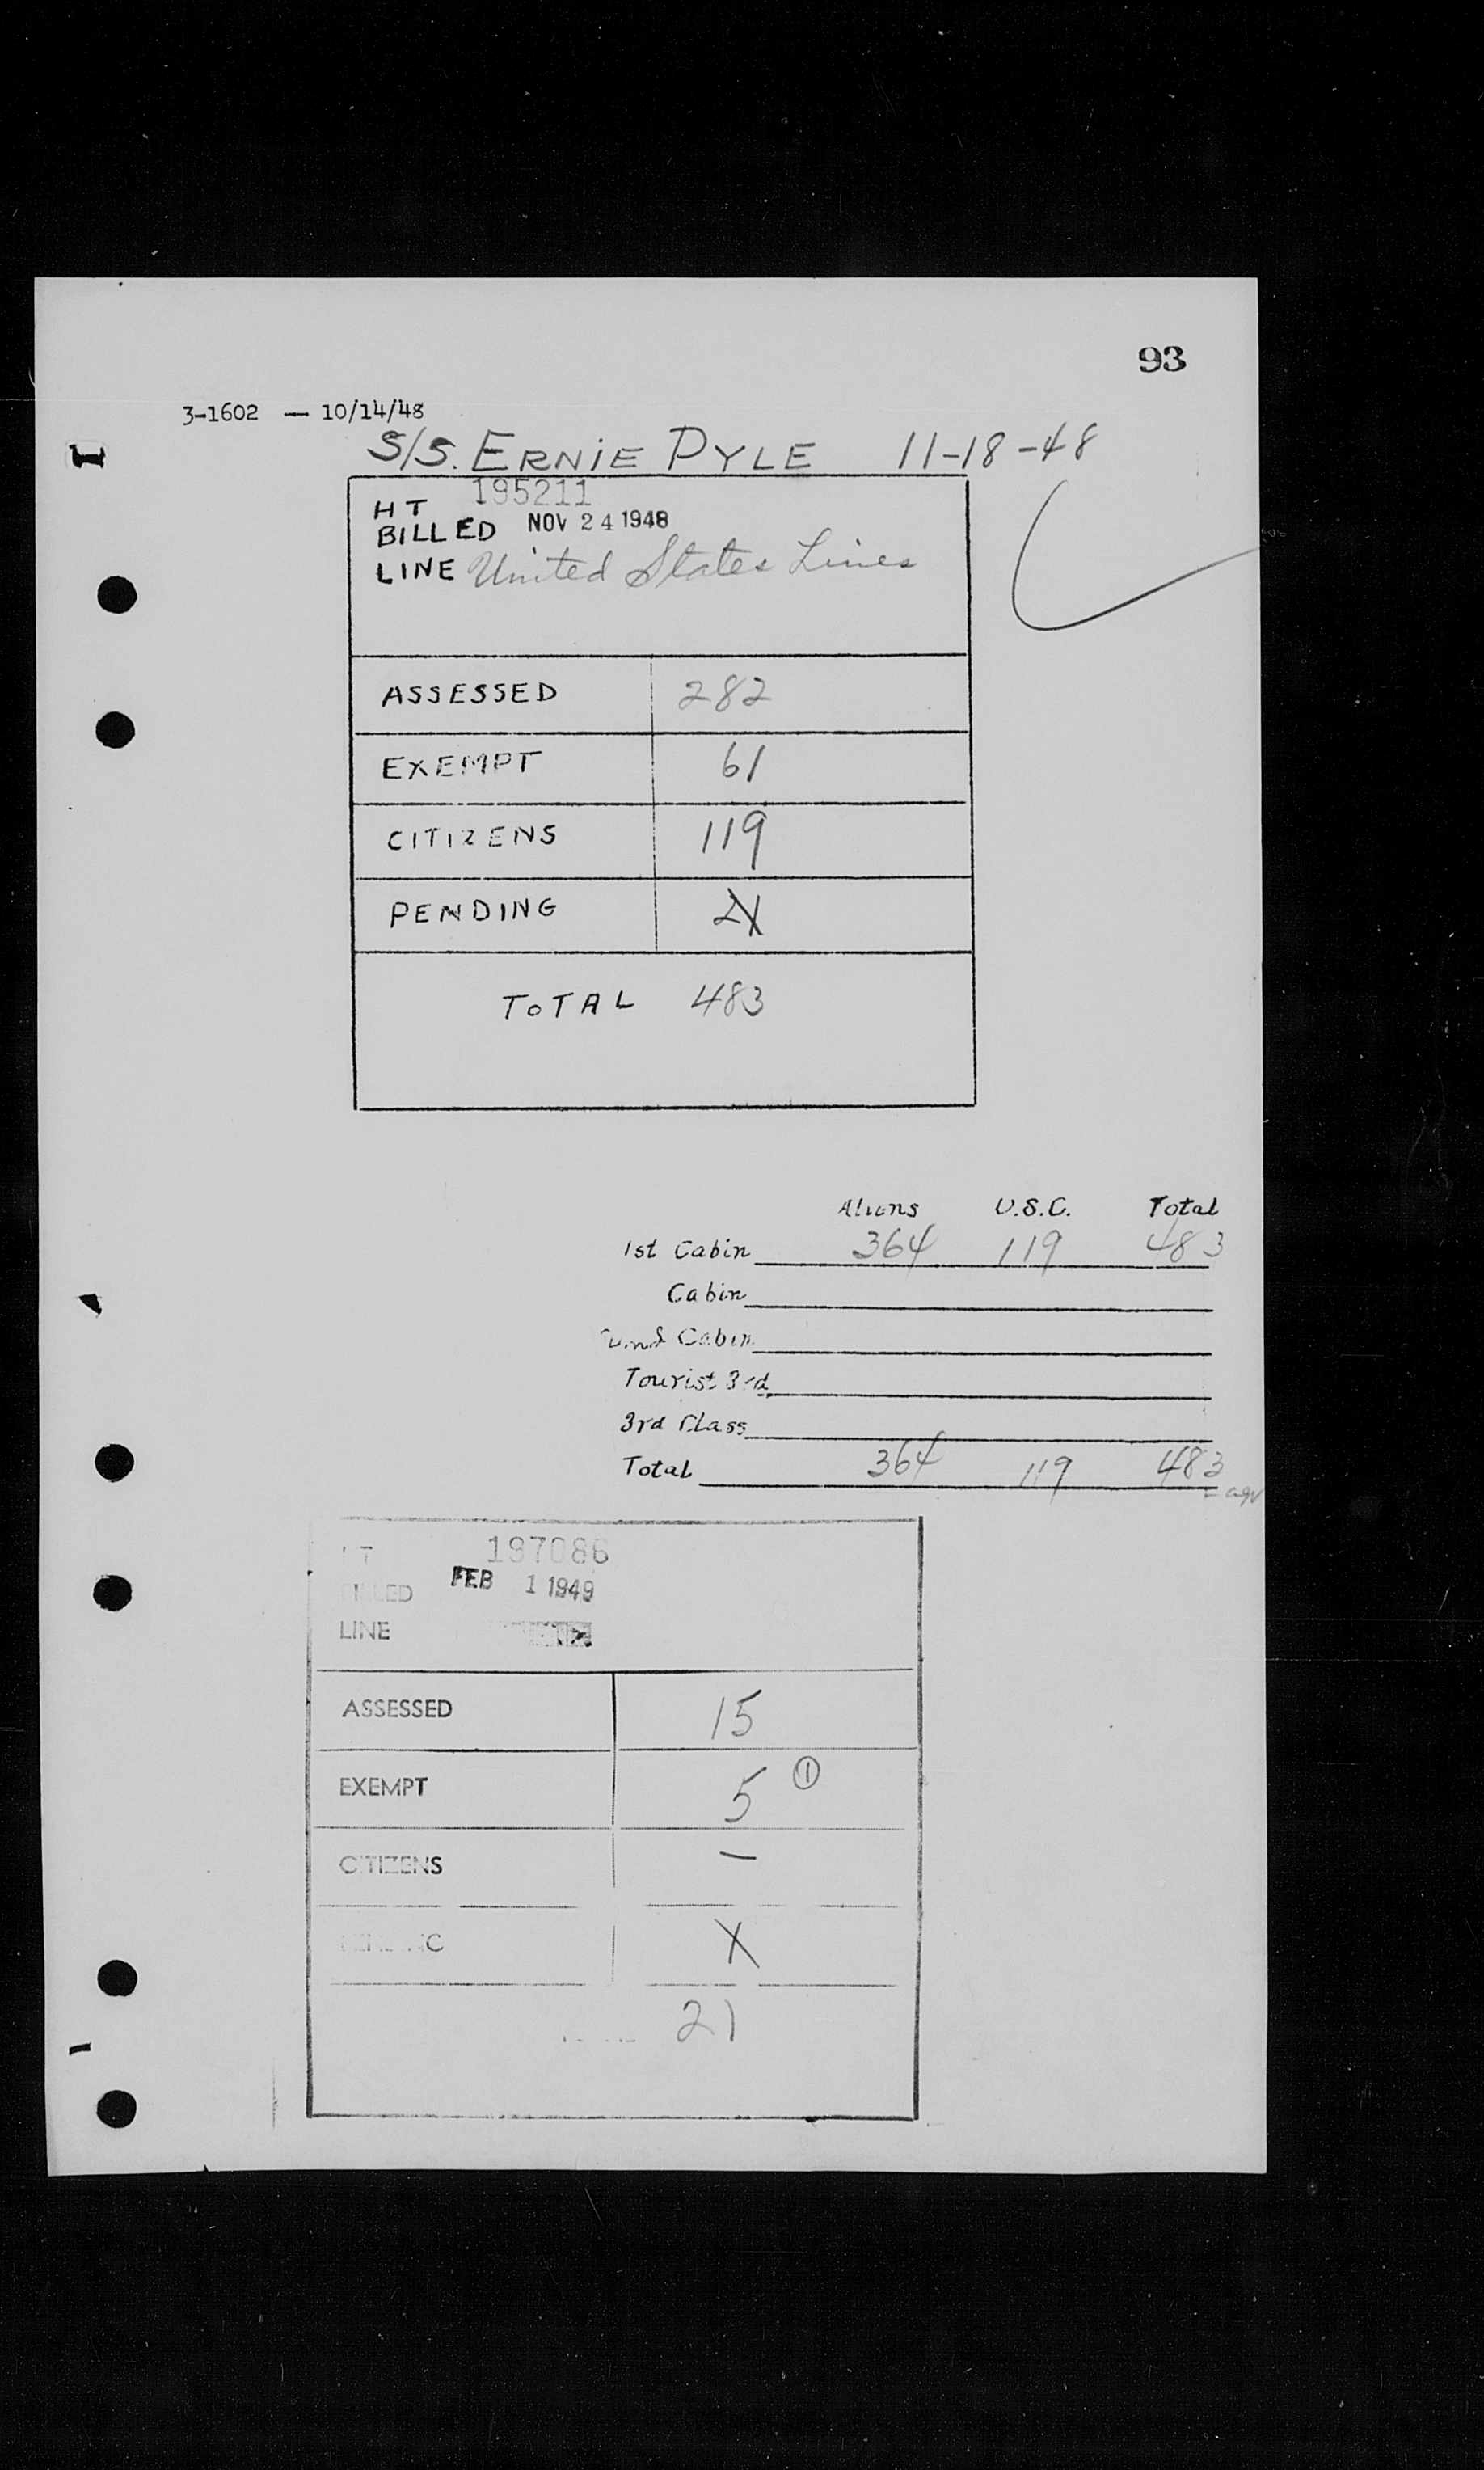 93
3-1602 — 10/14/48
S/S. ERNIE PYLE 11-18-48
HT 195211
BILLED NOV 24 1948
LINE United States Lines
ASSESSED 282
EXEMPT 61
CITIZENS 119
PENDING 21
TOTAL 483
Aliens U.S.C. Total
1st Cabin 364 119 483
Cabin
Cabin
Tourist 3rd
3rd Class
Total 364 119 483
197086
BILLED FEB 1 1949
LINE
ASSESSED 15
EXEMPT 5 ①
CITIZENS —
X
21